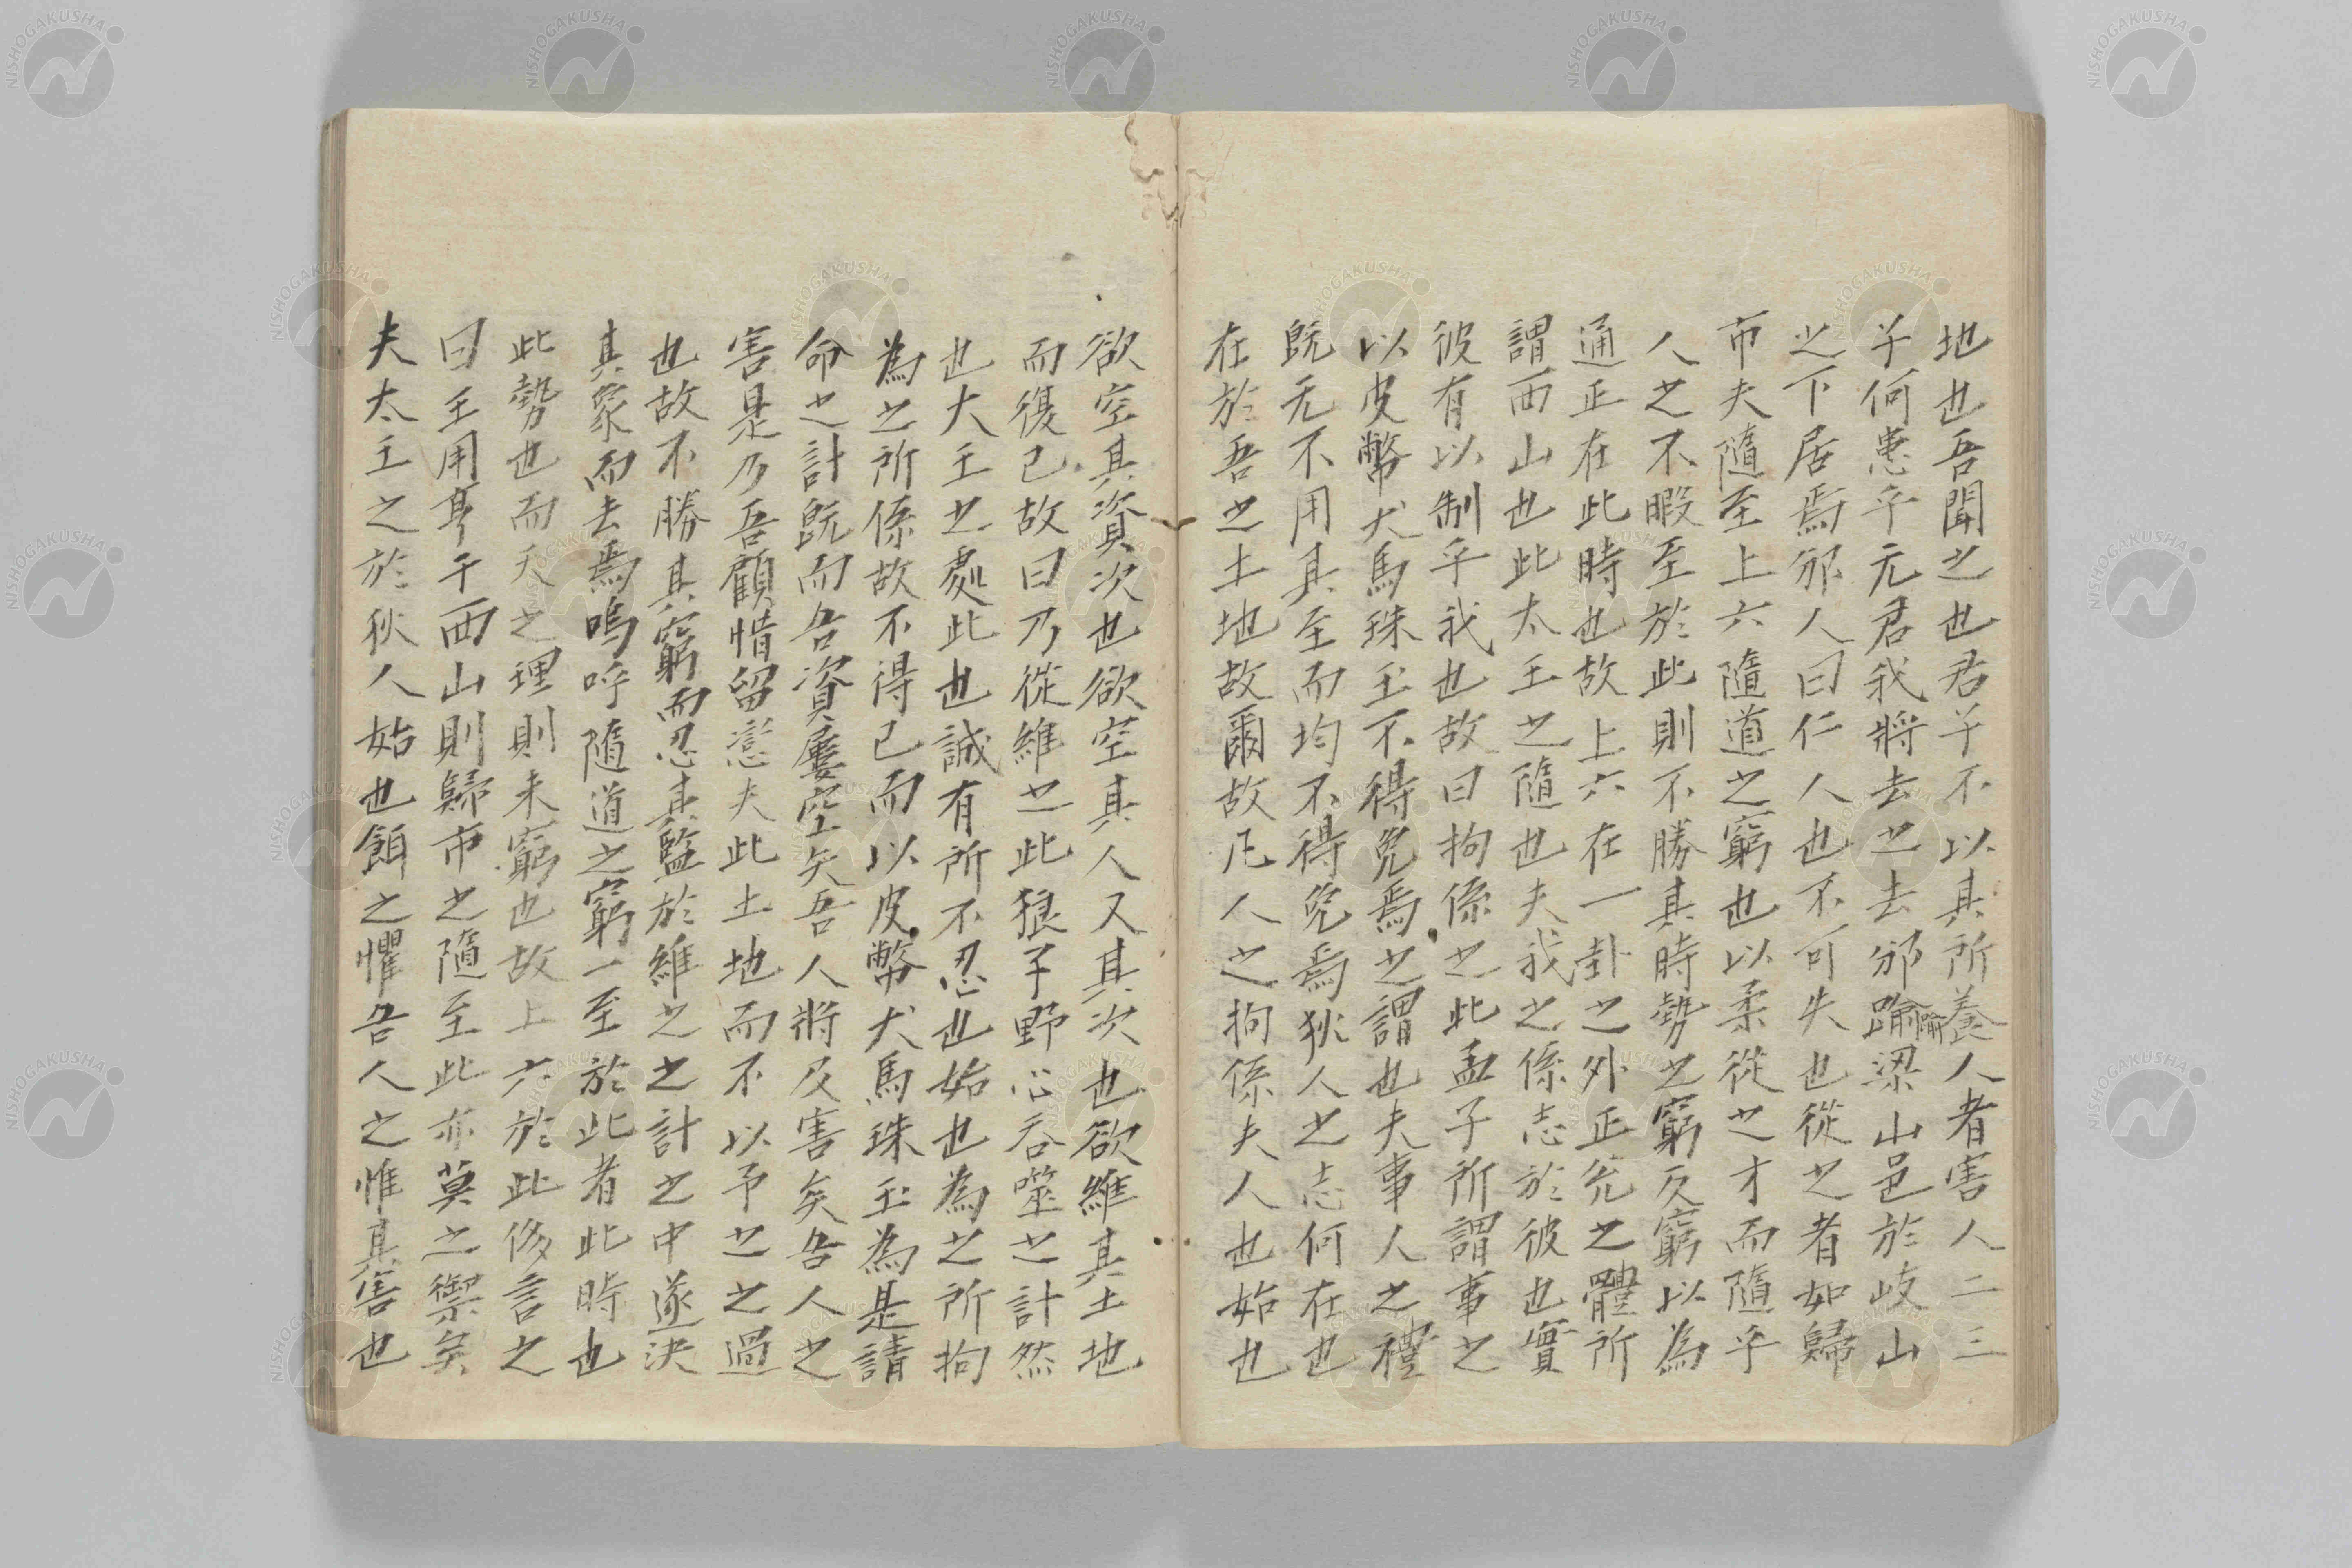 地也吾聞之也君子不以其所養人者害人二三
子何患乎无君我將去之去邠踰梁山邑於岐山
踰
之下居焉邠人曰仁人也不可失也從之者如歸
市夫隨至上六隨道之窮也以柔從之才而隨乎
人之不暇至於此則不勝其時勢之窮反窮以為
通正在此時也故上六在一卦之外正兌之體所
謂西山也此太王之隨也夫我之係志於彼也實
彼有以制乎我也故曰拘係之此孟子所謂事之
以皮幣犬馬珠玉不得免焉之謂也夫事人之禮
既无不用其至而均不得免焉狄人之志何在也
在於吾之土地故爾故凡人之拘係夫人也始也
欲空其資次也欲空其人又其次也欲維其土地
而後已故曰乃從維之此狼子野心吞噬之計然
也大王之處此也誠有所不忍也始也為之所拘
為之所係故不得已而以皮幣犬馬珠玉為是請
命之計既而吾資屢空矣吾人將及害矣吾人之
害是乃吾顧惜留戀夫此土地而不以予之之過
也故不勝其窮而忍其監於維之之計之中遂決
其家而去焉嗚呼隨道之窮一至於此者此時也
此勢也而天之理則未窮也故上六於此後言之
曰王用亨于西山則歸市之隨至此亦莫之禦矣
夫太王之於狄人始也餌之懼吾人之惟其害也